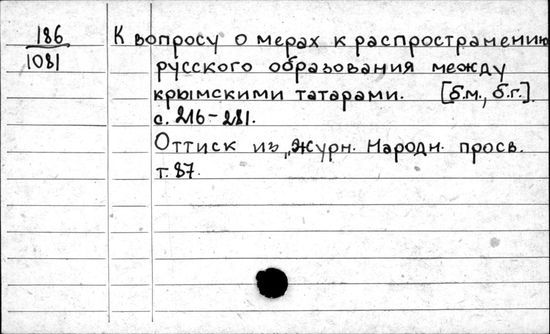 186
1081
К вопросу о мерах к распространению
русского образования между
крымскими татарами. [б.м., б.г.].
с. 216-281.
Оттиск из „Журн. Народн. просв.
т. 87.